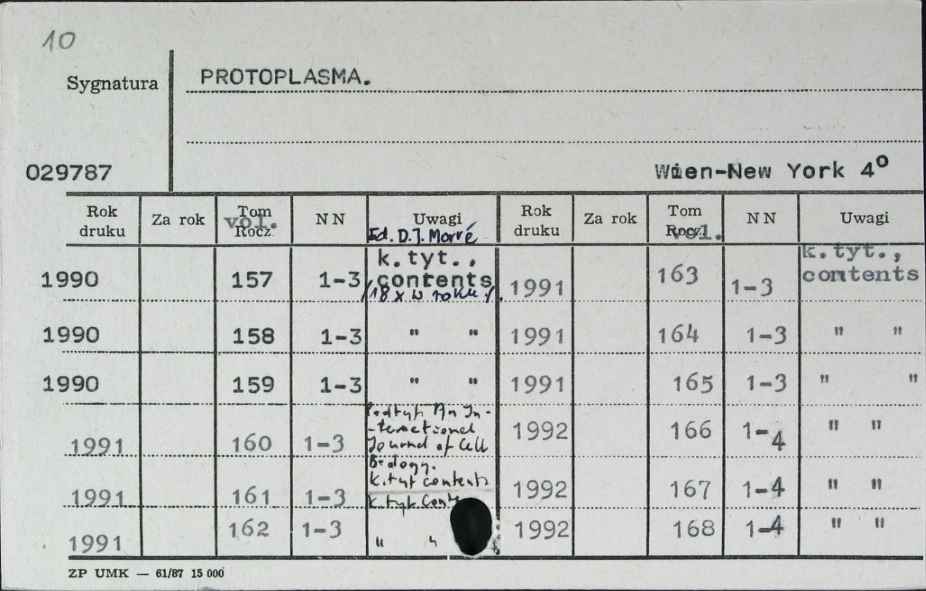 10
Sygnatura PROTOPLASMA.
029787 Wien-New York 4º
Rok druku Za rok Tom Rocz. vol. N N Uwagi Rok druku Za rok Tom Rocz. vol. N N Uwagi
Ed. D.J. Morré
1990 157 1-3 k.tyt., contents /18 x w roku/. 1991 163 1-3 k.tyt., contents
1990 158 1-3 " " 1991 164 1-3 " "
1990 159 1-3 " " 1991 165 1-3 " "
1991 160 1-3 Podtyt. An In-
-ternational
Journal of Cell
Biology.
k.tyt contents
1992 166 1-4 " "
1991 161 1-3 k.tyt 1992 167 1-4 " "
1991 162 1-3 " " 1992 168 1-4 " "
ZP UMK — 61/87 15 000